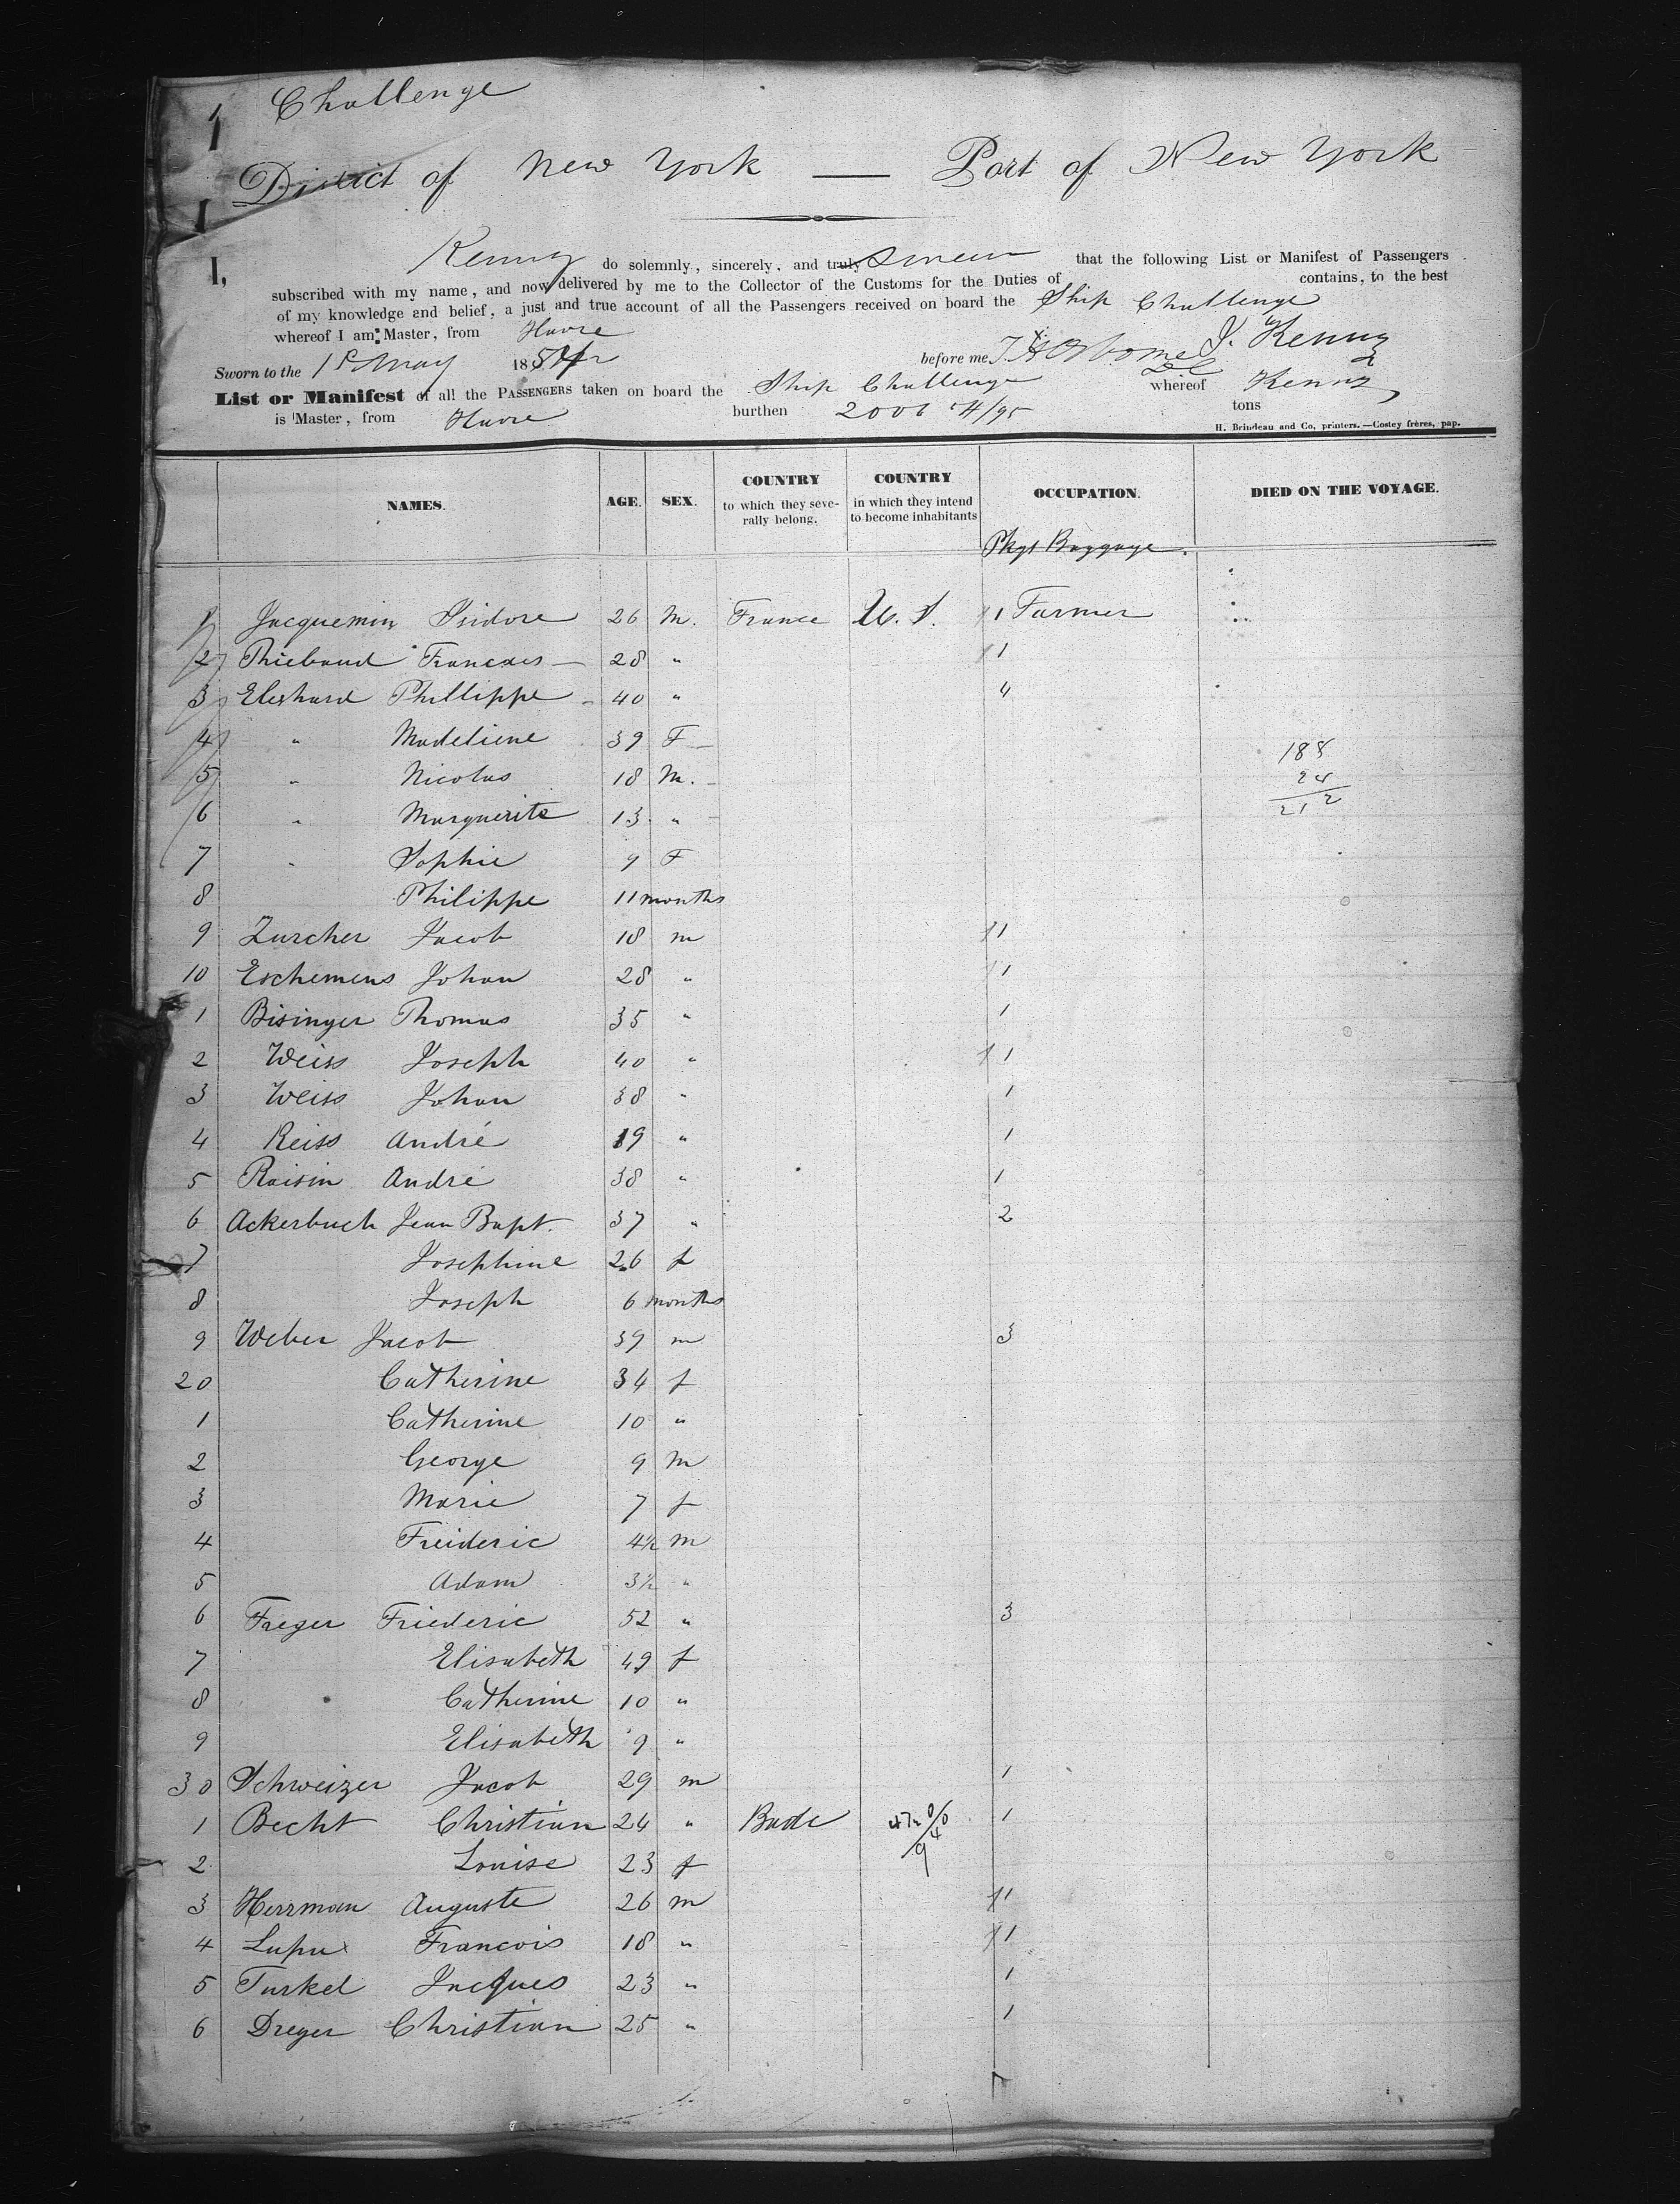 Challenge
District of New York — Port of New York
I, Kenny do solemnly, sincerely, and truly swear that the following List or Manifest of Passengers
subscribed with my name, and now delivered by me to the Collector of the Customs for the Duties of contains, to the best
of my knowledge and belief, a just and true account of all the Passengers received on board the Ship Challenge
whereof I am Master, from Havre J. Kenny
Sworn to the 1st May 185 before me
List or Manifest of all the PASSENGERS taken on board the Ship Challenge whereof Kenny
is Master, from Havre burthen 2006 /95 tons
H. Brindeau and Co, printers.—Costey frères, pap.
NAMES. AGE. SEX. COUNTRY to which they severally belong. COUNTRY in which they intend to become inhabitants OCCUPATION. DIED ON THE VOYAGE.
Pkgs Baggage.
1 Jacquemin Isidore 26 M. France U. S. 1 Farmer
2 Thiebaud Francois 28 " 1
3 Eberhard Phillippe 40 " 4
4 " Madeliene 39 F
188
5 " Nicolas 18 M.
24
6 " Marguerite 13 "
212
7 " Sophie 9 F
8 Philippe 11 months
9 Zurcher Jacob 18 m 11
10 Eschemens Johan 28 " 1
1 Bisinger Thomas 35 " 1
2 Weiss Joseph 40 " 11
3 Weiss Johan 38 " 1
4 Reiss André 19 " 1
5 Raisin André 38 " 1
6 Ackerbuch Jean Bapt. 37 " 2
7 Josephine 26 f
8 Joseph 6 months
9 Weber Jacob 39 m 3
20 Catherine 34 f
1 Catherine 10 "
2 George 9 M
3 Marie 7 f
4 Freideric 4½ M
5 Adam 3½ "
6 Freger Friederic 52 " 3
7 Elisabeth 49 f
8 Catherine 10 "
9 Elisabeth 9 "
30 Schweizer Jacob 29 m 1
1 Becht Christian 24 " Bade 1
2 Louise 23 f
3 Herrman Auguste 26 m 11
4 Lupu Francois 18 " 11
5 Turkel Jacques 23 " 1
6 Dreyer Christian 25 " 1